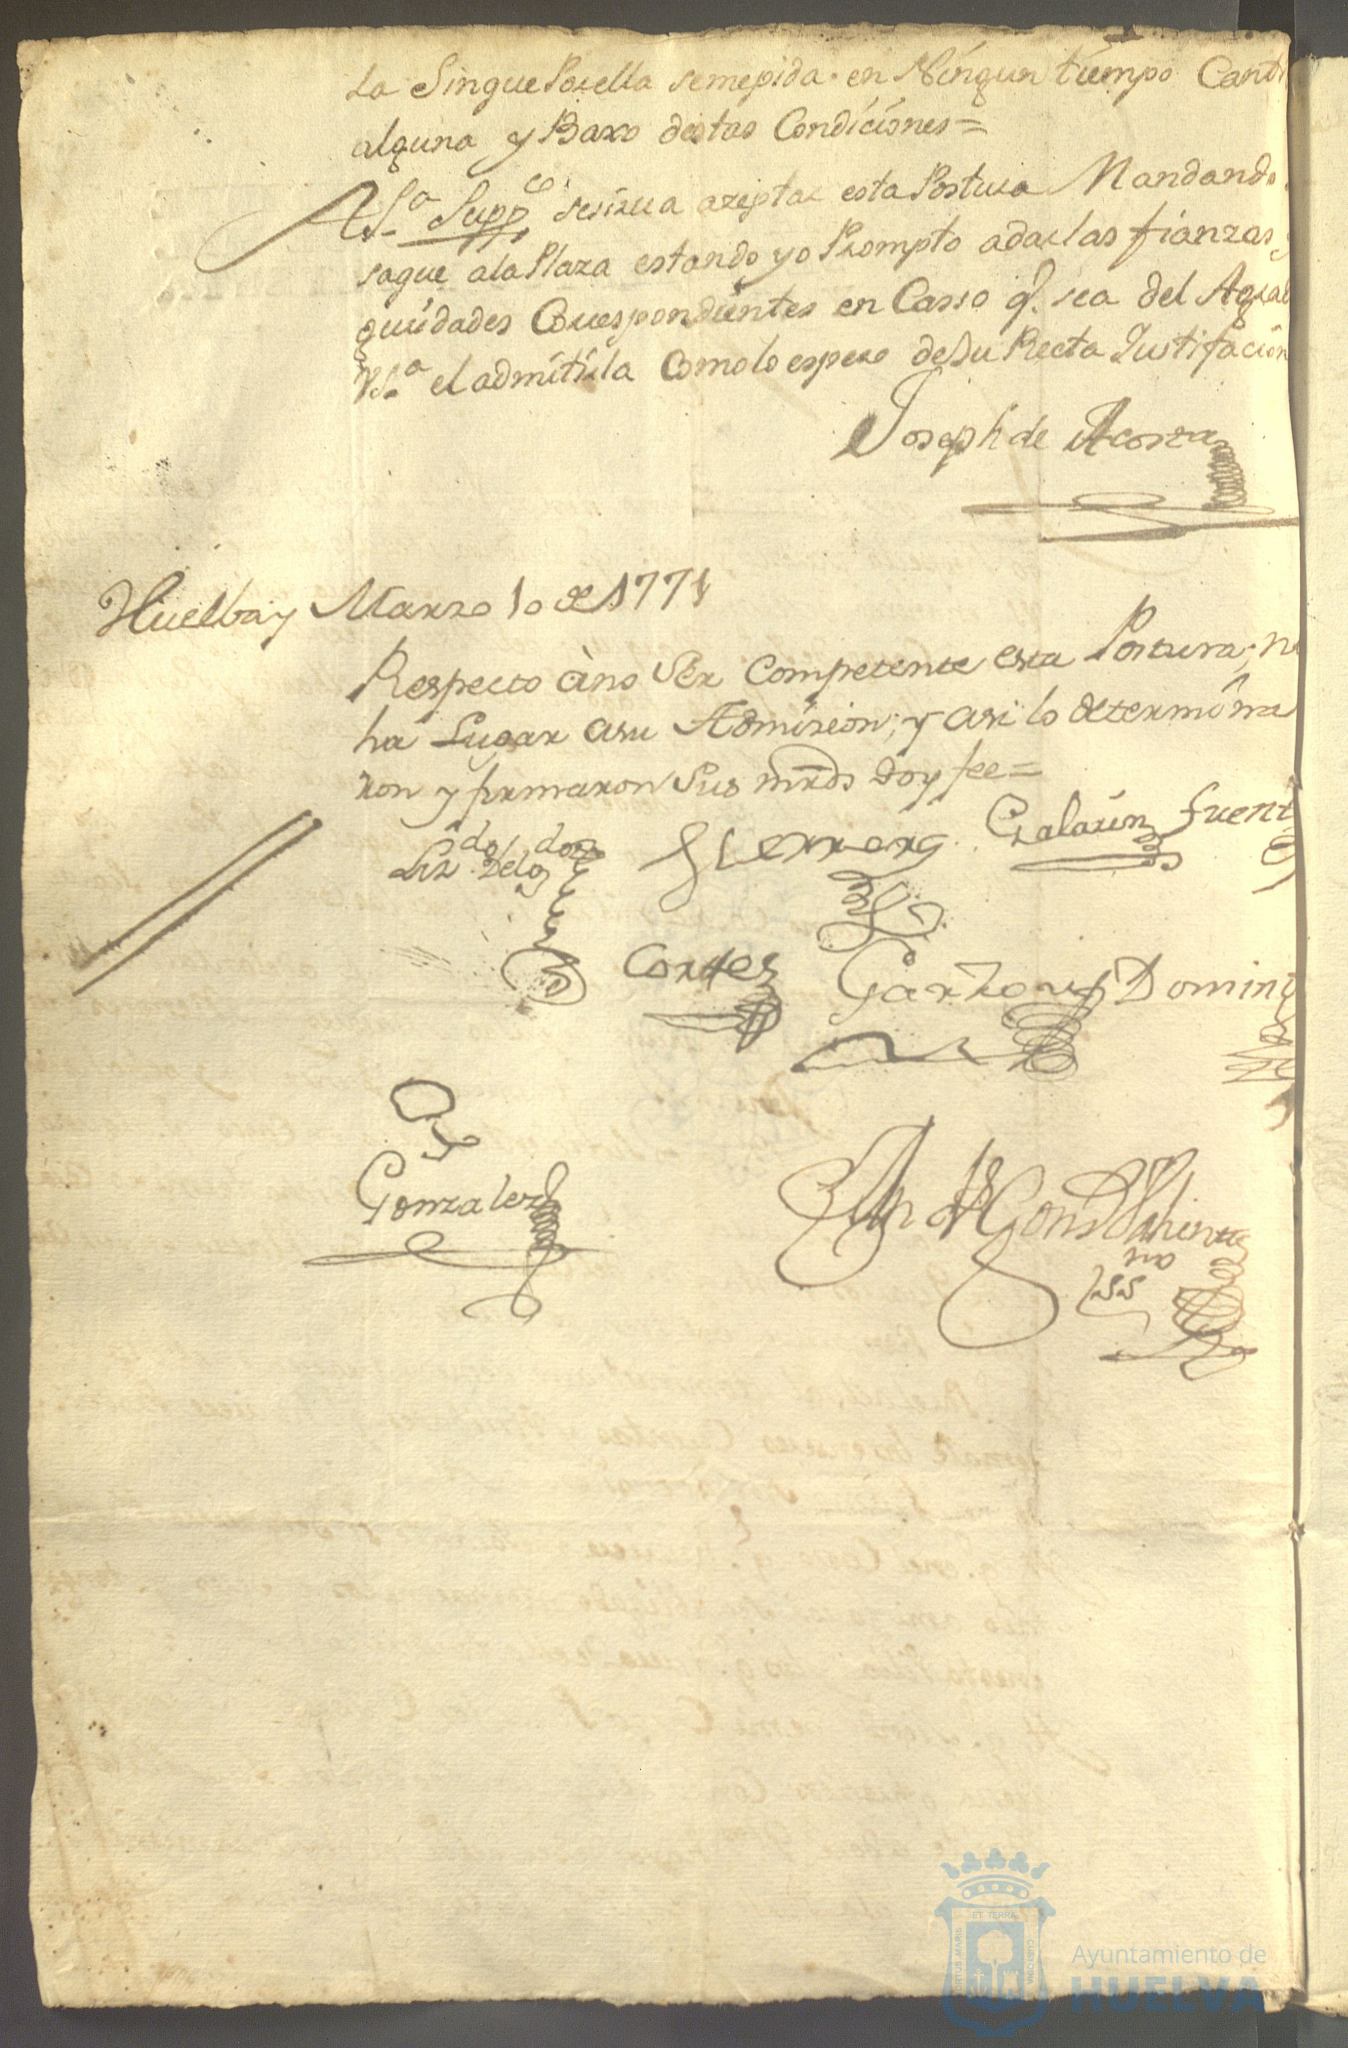 la Sin que Por ella se me pida en Ningun tiempo Canti
alguna y Baxo destas Condiciones=
A V.Sa. Suppco. se sirua azeptar esta Postura Mandando
saque a la Plaza estando yo Prompto a dar las fianzas, y
guridades Correspondientes en Casso q. sea del Agrad
V.Sa. el admitirla Como lo espero de Su Recta Justifacion
Joseph de Acosta
Huelba y Marzo 10 de 1771
Respecto à no Ser Competente esta Postura; no
ha Lugar a su Admision; y asi lo determina
ron y firmaron Sus mrds doy fee=
Herrera
Galarin
Fuent
Cortes
Garzon
Doming
Gonzalez
Ayuntamiento de
HUELVA